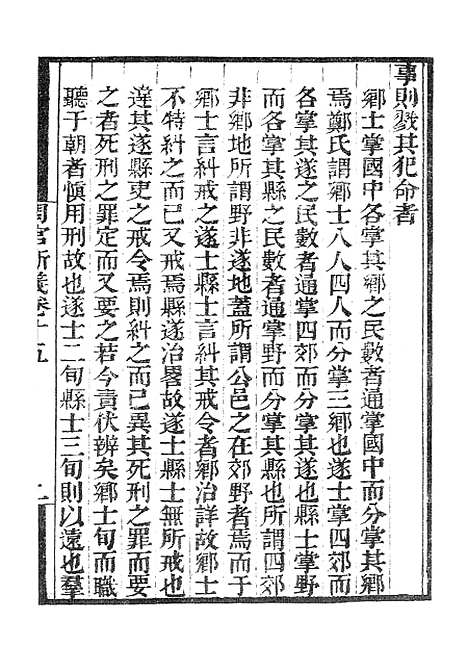 事則戮其犯命者
鄉士掌國中各掌其鄉之民數者通掌國中而分掌其鄉
焉鄭氏謂鄉士八人四人而分掌三鄉也遂士掌四郊而
各掌其遂之民數者通掌四郊而分掌其遂也縣士掌野
而各掌其縣之民數者通掌野而分掌其縣也所謂四郊
非鄉地所謂野非遂地蓋所謂公邑之在郊野者焉而于
鄉士言糾戒之遂士縣士言糾其戒令者鄉治詳故鄉士
不特糾之而已又戒焉縣遂治畧故遂士縣士無所戒也
達其遂縣吏之戒令焉則糾之而已異其死刑之罪而要
之者死刑之罪定而又要之若今責伏辨矣鄉士旬而職
聽于朝者慎用刑故也遂士二旬縣士三旬則以遠也羣
周官新義卷十五
二